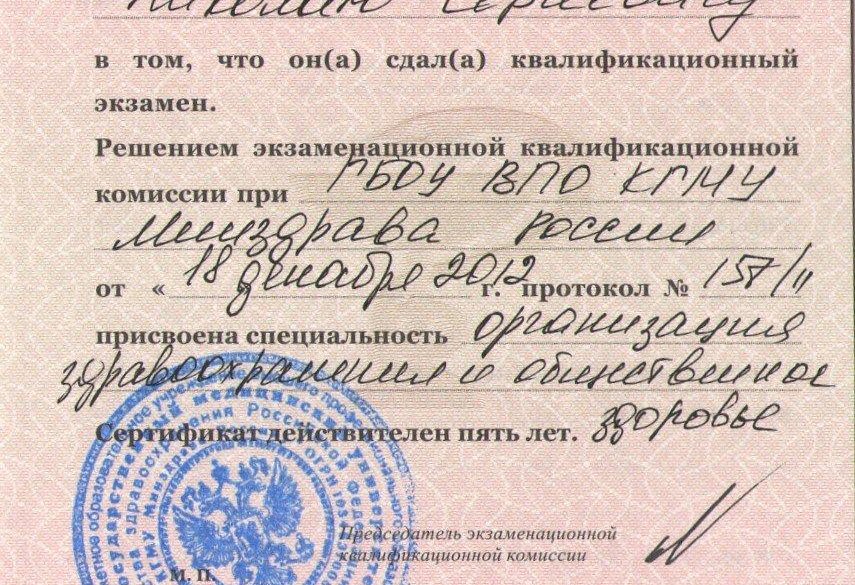 в том, что он(а) сдал(а) квалификационный
экзамен.
Решением экзаменационной квалификационной
комиссии при ГБОУ ВПО КГМУ
Минздрава России
от « 18 декабря 2012 г. протокол № 157/11
присвоена специальность организация
здравоохранения и общественное
здоровье
Сертификат действителен пять лет.
Председатель экзаменационной
квалификационной комиссии
М. П.